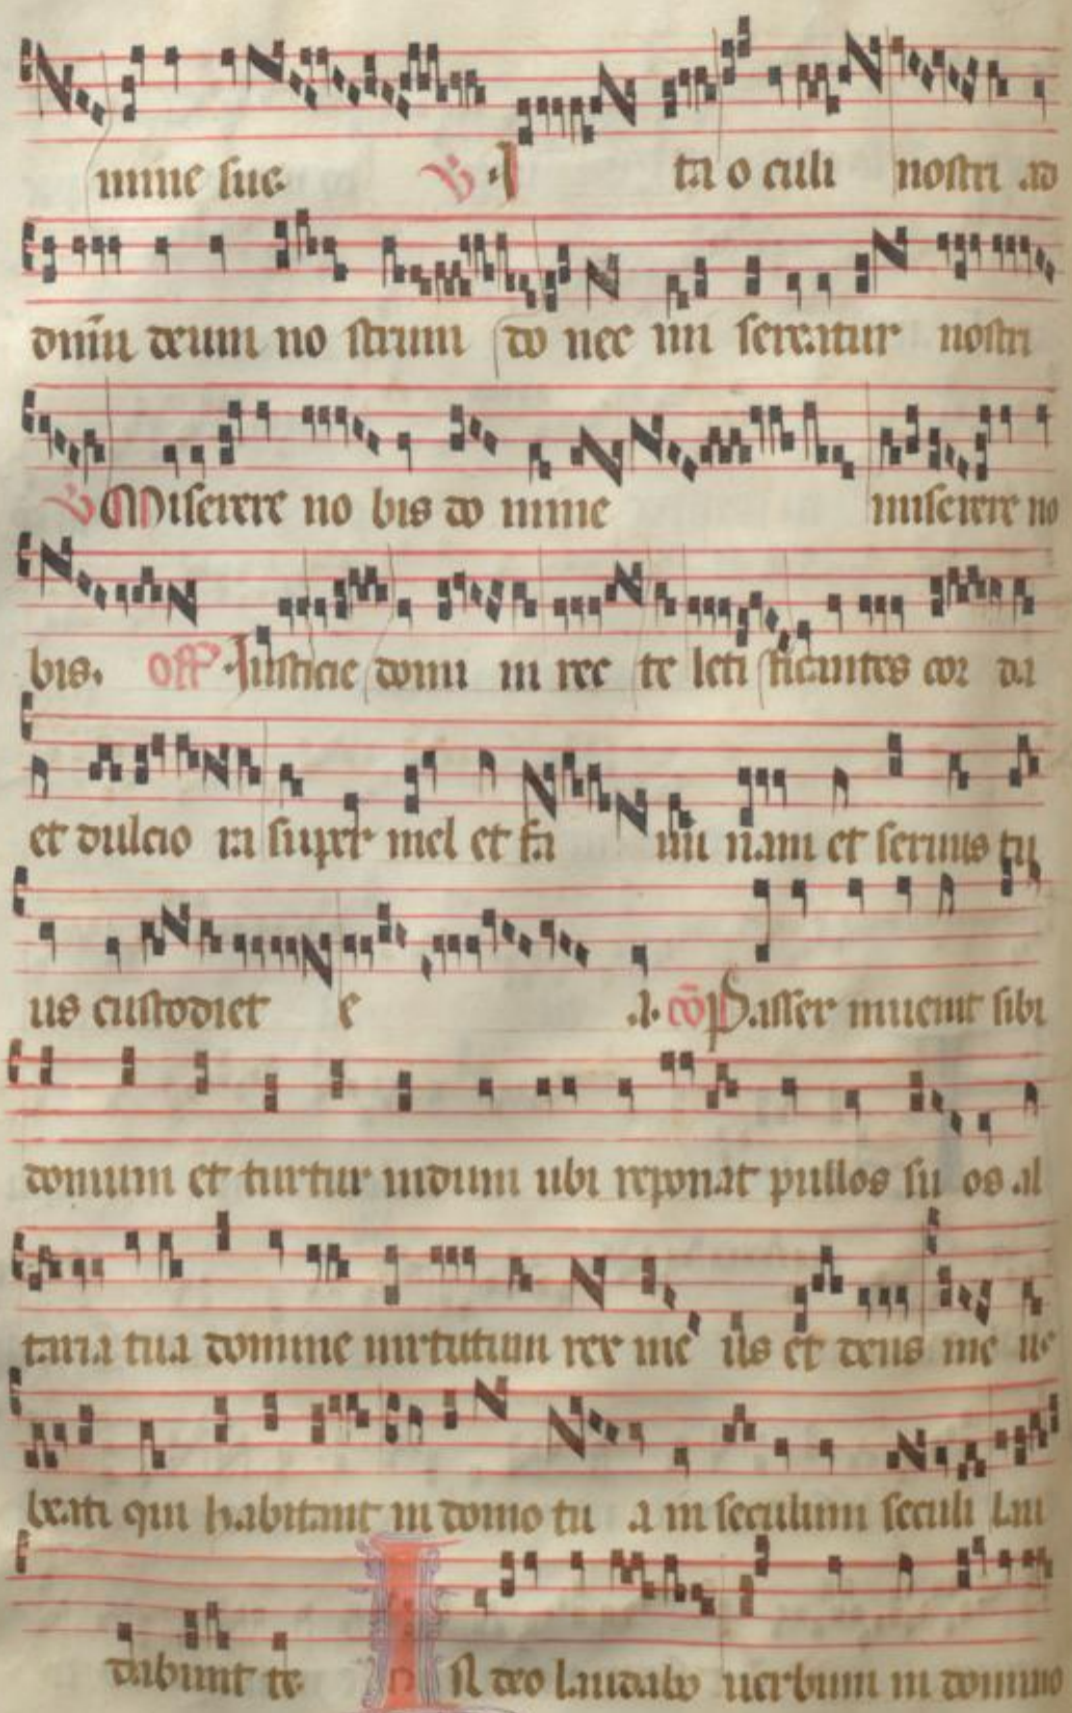 mine sue ℣ I ta o culi nostri ad
dn̄m deum no strum do nec mi sereatur nostri
℣ Miserere no bis do mine miserere no
bis. Off Iusticie domi ni rec te leti ficantes cor da
et dulcio ra super mel et fa uu nam et seruus tu
us custodiet e a. cō Passer inuenit sibi
domum et turtur nidum ubi reponat pullos su os al
taria tua domine uirtutum rex me us et deus me us
beati qui habitant in domo tu a in seculum seculi lau
dabunt te IN deo laudabo uerbum in domino